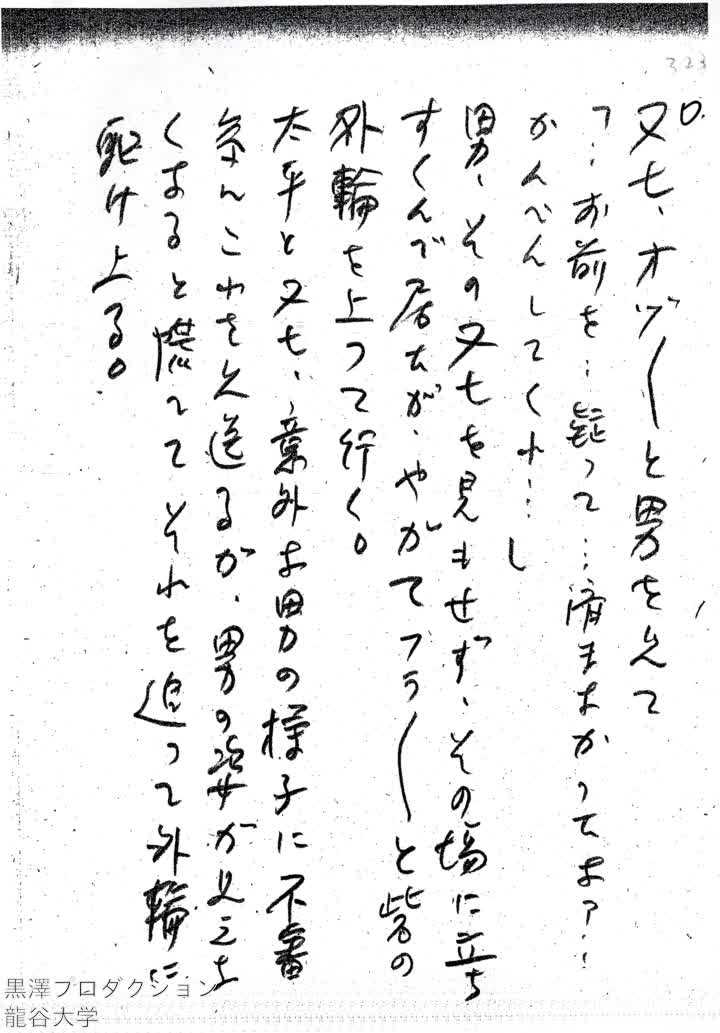 323
0.
又七、オヅ〱と男を見て
「‥お前を‥疑って…済まなかったな‥
かんべんしてくれ…」
男、その又七を見もせず、その場に立ち
すくんで居たが、やがてフラ〱と砦の
外輪を上って行く。
太平と又七、意外な男の様子に不審
気にこれを見送るが、男の姿が見えな
くなると慌てて それを追って外輪に
駆け上る。
黒澤プロダクション
龍谷大学